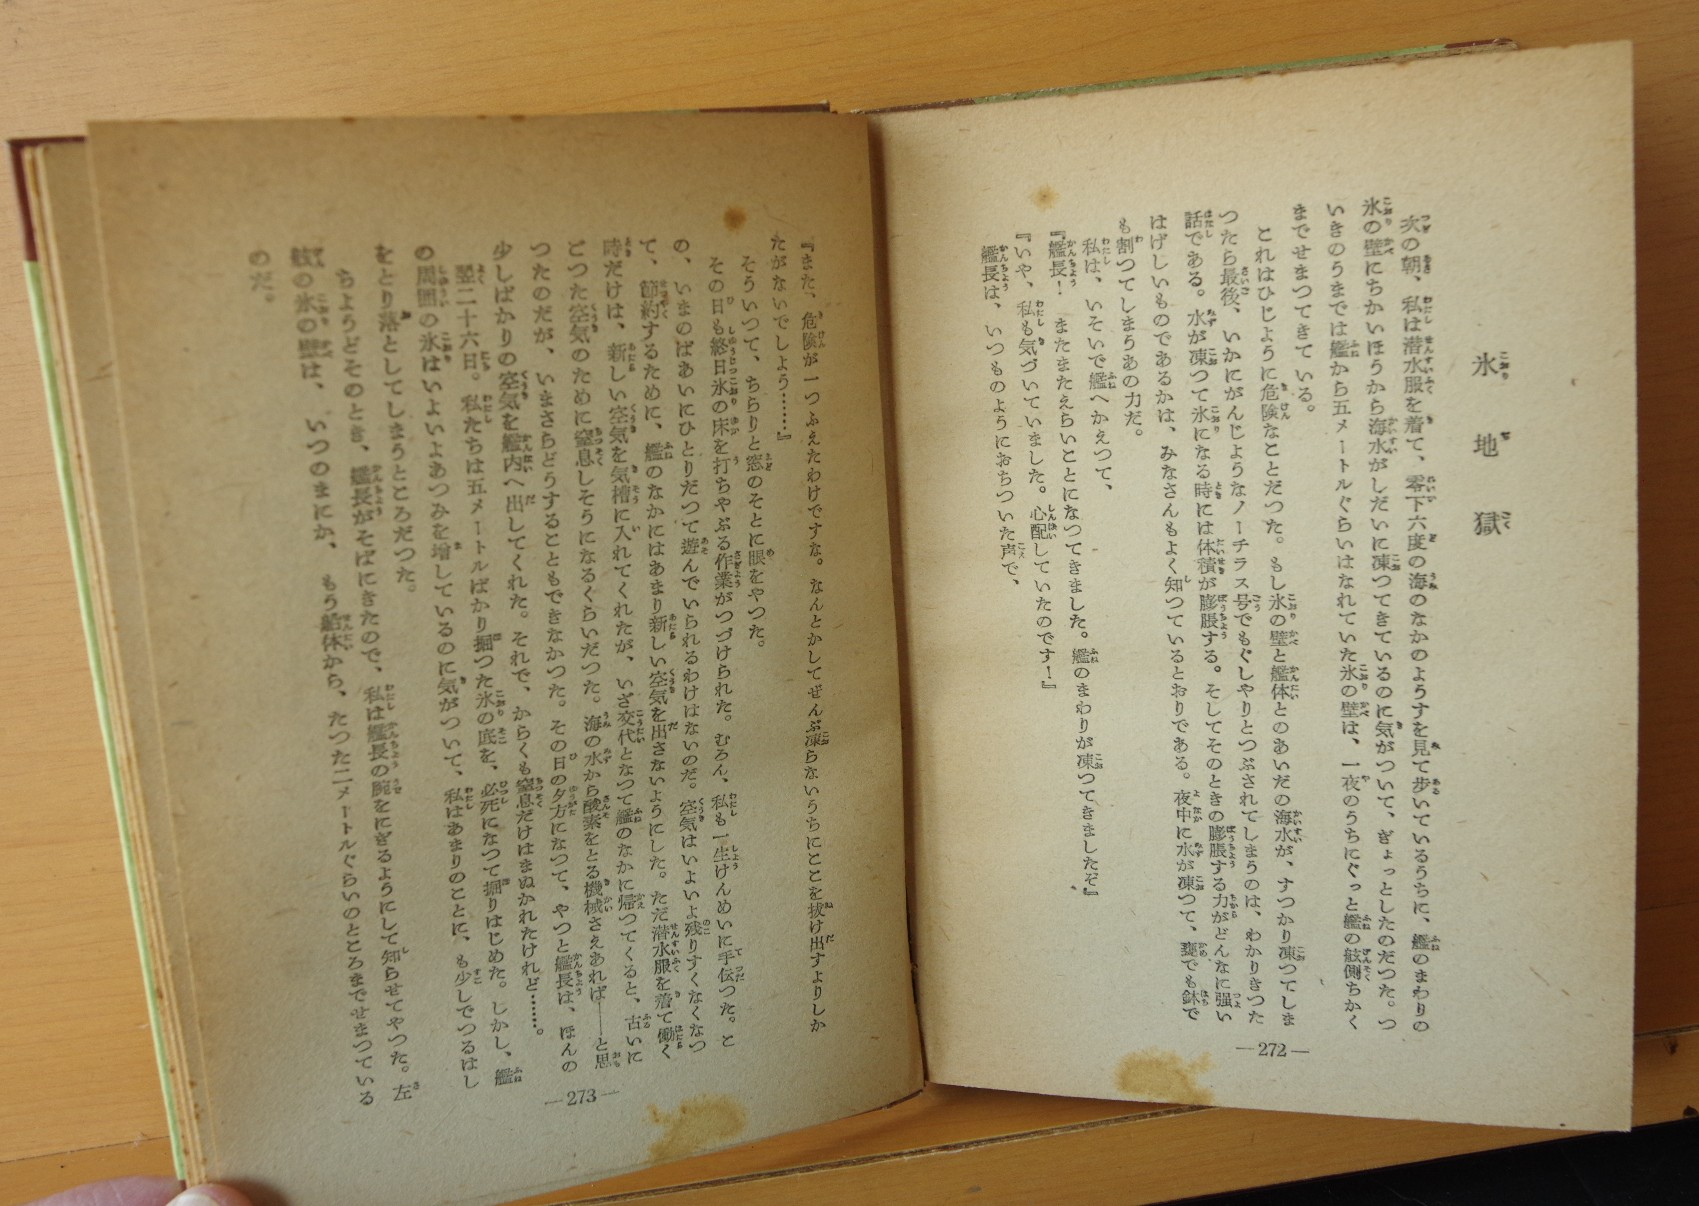 氷地獄
次の朝、私は潜水服を着て、零下六度の海のなかのようすを見て歩いているうちに、艦のまわりの
氷の壁にちかいほうから海水がしだいに凍つてきているのに気がついて、ぎょっとしたのだつた。つ
いきのうまでは艦から五メートルぐらいはなれていた氷の壁は、一夜のうちにぐっと艦の舷側ちかく
までせまつてきている。
これはひじように危険なことだつた。もし氷の壁と艦体とのあいだの海水が、すつかり凍つてしま
つたら最後、いかにがんじようなノーチラス号でもぐしやりとつぶされてしまうのは、わかりきつた
話である。水が凍つて氷になる時には体積が膨脹する。そしてそのときの膨脹する力がどんなに強い
はげしいものであるかは、みなさんもよく知つているとおりである。夜中に水が凍つて、甕でも鉢で
も割つてしまうあの力だ。
私は、いそいで艦へかえつて、
『艦長！　またまたえらいことになつてきました。艦のまわりが凍つてきましたぞ』
『いや、私も気づいていました。心配していたのです！』
艦長は、いつものようにおちついた声で、
―272―
『また、危険が一つふえたわけですな。なんとかしてぜんぶ凍らないうちにここを抜け出すよりしか
たがないでしよう……』
そういつて、ちらりと窓のそとに眼をやつた。
その日も終日氷の床を打ちやぶる作業がつづけられた。むろん、私も一生けんめいに手伝つた。と
の、いまのばあいにひとりだつて遊んでいられるわけはないのだ。空気はいよいよ残りすくなくなつ
て、節約するために、艦のなかにはあまり新しい空気を出さないようにした。ただ潜水服を着て働く
時だけは、新しい空気を気槽に入れてくれたが、いざ交代となつて艦のなかに帰つてくると、古いに
ごつた空気のために窒息しそうになるくらいだつた。海の水から酸素をとる機械さえあれば――と思
つたのだが、いまさらどうすることもできなかつた。その日の夕方になつて、やつと艦長は、ほんの
少しばかりの空気を艦内へ出してくれた。それで、からくも窒息だけはまぬかれたけれど……。
翌二十六日。私たちは五メートルばかり掘つた氷の底を、必死になつて掘りはじめた。しかし、艦
の周囲の氷はいよいよあつみを増しているのに気がついて、私はあまりのことに、も少しでつるはし
をとり落としてしまうところだつた。
ちようどそのとき、艦長がそばにきたので、私は艦長の腕をにぎるようにして知らせてやつた。左
舷の氷の壁は、いつのまにか、もう船体から、たつた二メートルぐらいのところまでせまつている
のだ。
―273―